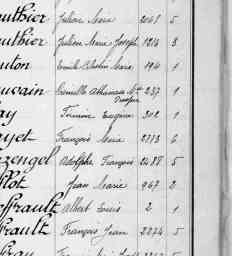 uthier Julien Marie 2045 5
uthier Julien Marie Joseph 1215 3
uton Emile Marie 194 1
uvain Camille Athanase 237 1
ay Firmin Eugène 312 1
yet François Marie 2773 6
zengel Adolphe François 2418 5
llot Jean Marie 967 2
ffrault Albert Louis 2 1
ffrault François Jean 2274 5